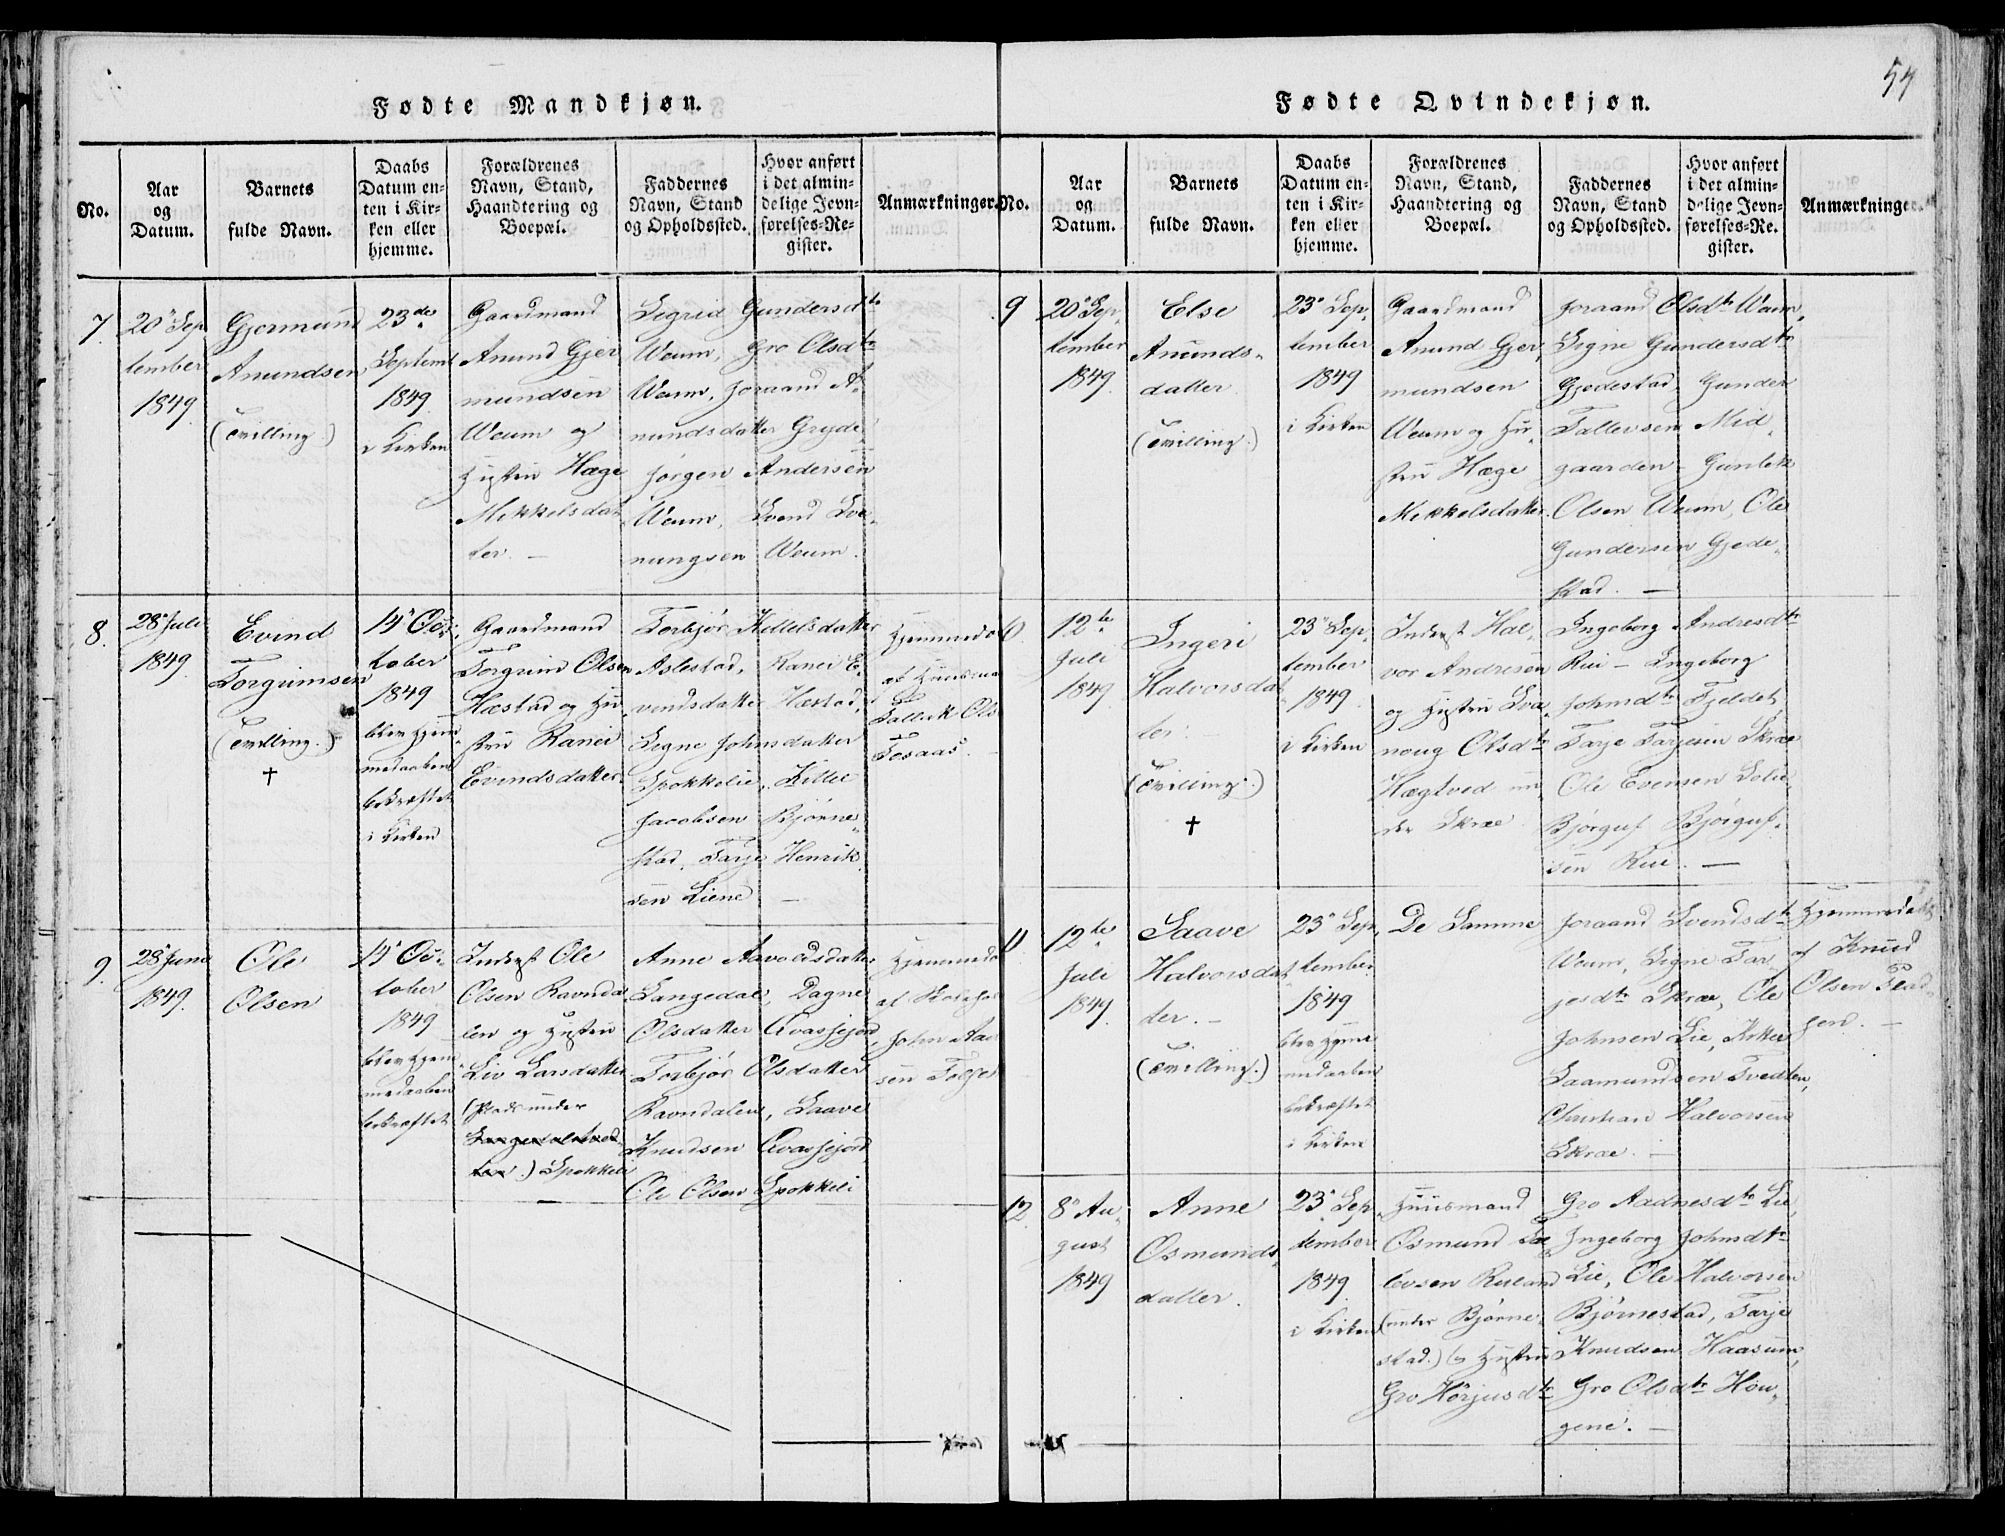 54
Fødte Mandkjøn.
No.
Aar
og
Datum.
Barnets
fulde Navn.
Daabs
Datum en-
ten i Kir-
ken eller
hjemme.
Forældrenes
Navn, Stand,
Haandtering og
Boepæl.
Faddernes
Navn, Stand
og Opholdssted.
Hvor anført
i det almin-
delige Jevn-
førelses-Re-
gister.
Anmærkninger.
7.
20de Sep
tember
1849
Gjermund
Anundsen
(Tvilling)
23de
Septemb
1849
i Kirken
Gaardmand
Anund Gjer
mundsen
Weum og
Hustru Hæge
Mikkelsdat
ter. –
Sigrid Gundersdtr
Weum, Gro Olsdtr
Weum, Joraand A-
nundsdatter Gryde,
Jørgen Andersen
Weum, Svend Sve-
nungsen Weum.
8.
28de Juli
1849
Evind
Torgrimsen
(Tvilling.)
†
14de Oc-
tober
1849
blev Hjem
medaaben
bekræftet
i Kirken
Gaardmand
Torgrim Olsen
Hæstad og Hu
stru Ranei
Evindsdatter
Torbjør Kittelsdatter
Aslestad, Ranei E-
vindsdatter Hæstad,
Signe Johnsdatter
Spokkelie, Kittel
Jacobsen Bjørne-
stad, Tarje Henrik
sen Liene –
Hjemmedøbt
af Huusma
Tallak Ols
Tosaas
9.
28de Juni
1849
Ole
Olsen
14de Oc-
tober
1849
blev Hjem
medaaben
bekræftet
Inderst Ole
Olsen Ravnda
len og Hustru
Liv Larsdatter
(Plads under
) Spokkeli
Anne Aavoldsdatter
Langedal, Dagne
Olsdatter Kvasfjord
Torbjør Olsdatter
Ravndalen, Saave
Knudsen Kvasfjord
Ole Olsen Spokkeli
Hjemmedøbt
af
John
sen
Fødte Qvindekjøn.
No.
Aar
og
Datum.
Barnets
fulde Navn.
Daabs
Datum en-
ten i Kir-
ken eller
hjemme.
Forældrenes
Navn, Stand,
Haandtering og
Boepæl.
Faddernes
Navn, Stand
og Opholdssted.
Hvor anført
i det almin-
delige Jevn-
førelses-Re-
gister.
Anmærkninger.
9
20de Sep-
tember
1849
Else
Anunds-
datter
(Tvilling.)
23de Sep-
tember
1849
i Kirken
Gaardmand
Anund Gjer
mundsen
Weum og Hu-
stru Hæge
Mikkelsdatter.
Joraand Olsdtr Weum,
Signe Gundersdtr
Gjedestad Gunder
Tallevsen Mid-
gaarden – Gunlek
Olsen Weum, Ole
Gundersen Gjede-
stad. –
10.
12te
Juli
1849
Ingeri
Halvorsdat
ter.
(Tvilling.)
†
23de Sep-
tember
1849
i Kirken
Inderst Hal-
vor Andresen
og Hustru Sve-
noug Olsdtr
Hægtved un-
der Skræ
Ingeborg Andresdtr
Rui – Ingeborg
Johnsdtr Fjeldet,
Tarje Tarjesen Skræ
Ole Evensen Solie,
Bjørguf Bjørguf-
sen Rui. –
11.
12te
Juli
1849
Saave
Halvorsdat-
ter. –
(Tvilling.)
23de Sep-
tember
1849
blev Hjem
medaaben
bekræftet
i Kirken
De Samme
Joraand Svendsdtr
Weum, Signe Tar-
jesdtr Skræ, Ole
Johnsen Lie,
Saamundsen Tvedten,
Christian Halvorsen
Skræ. –
Hjemmedøbt
af Knud
Olsen
12.
8de Au-
gust
1849
Anne
Osmunds-
datter.
23de Sep-
tember
1849
i Kirken
Huusmand
Osmund
levsen Ruland
(under Bjørne-
stad.) og Hustru
Gro Hørjusdtr
Gro Aadnesdtr Lie,
Ingeborg Johnsdtr
Lie, Ole Halvorsen
Bjørnestad, Tarje
Knudsen Haasum,
Gro Olsdtr Hou-
gene. –